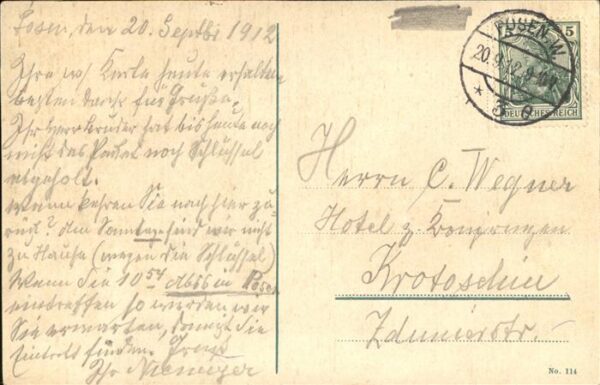 Posen, den 20. Septbr 1912
Ihre w/ Karte heute erhalten
besten Dank für Grüße.
Ihr Herr Bruder hat bis heute noch
nicht das Packet noch Schlüssel
abgeholt.
Wann kehren Sie nach hier zu-
rück? Am Sonntag sind wir nicht
zu Hause (wegen die Schlüssel)
Wenn Sie 10 54 Abds in Posen
eintreffen so würden wir
Sie erwarten, damit Sie
Eintritt finden.
Ihr Niemeyer
POSEN.W.
20.9.12.9-10
* 3 e
5
DEUTSCHES REICH
Herrn C. Wegner
Hotel z.
Krotoschin
Zdunierstr.-
No. 114